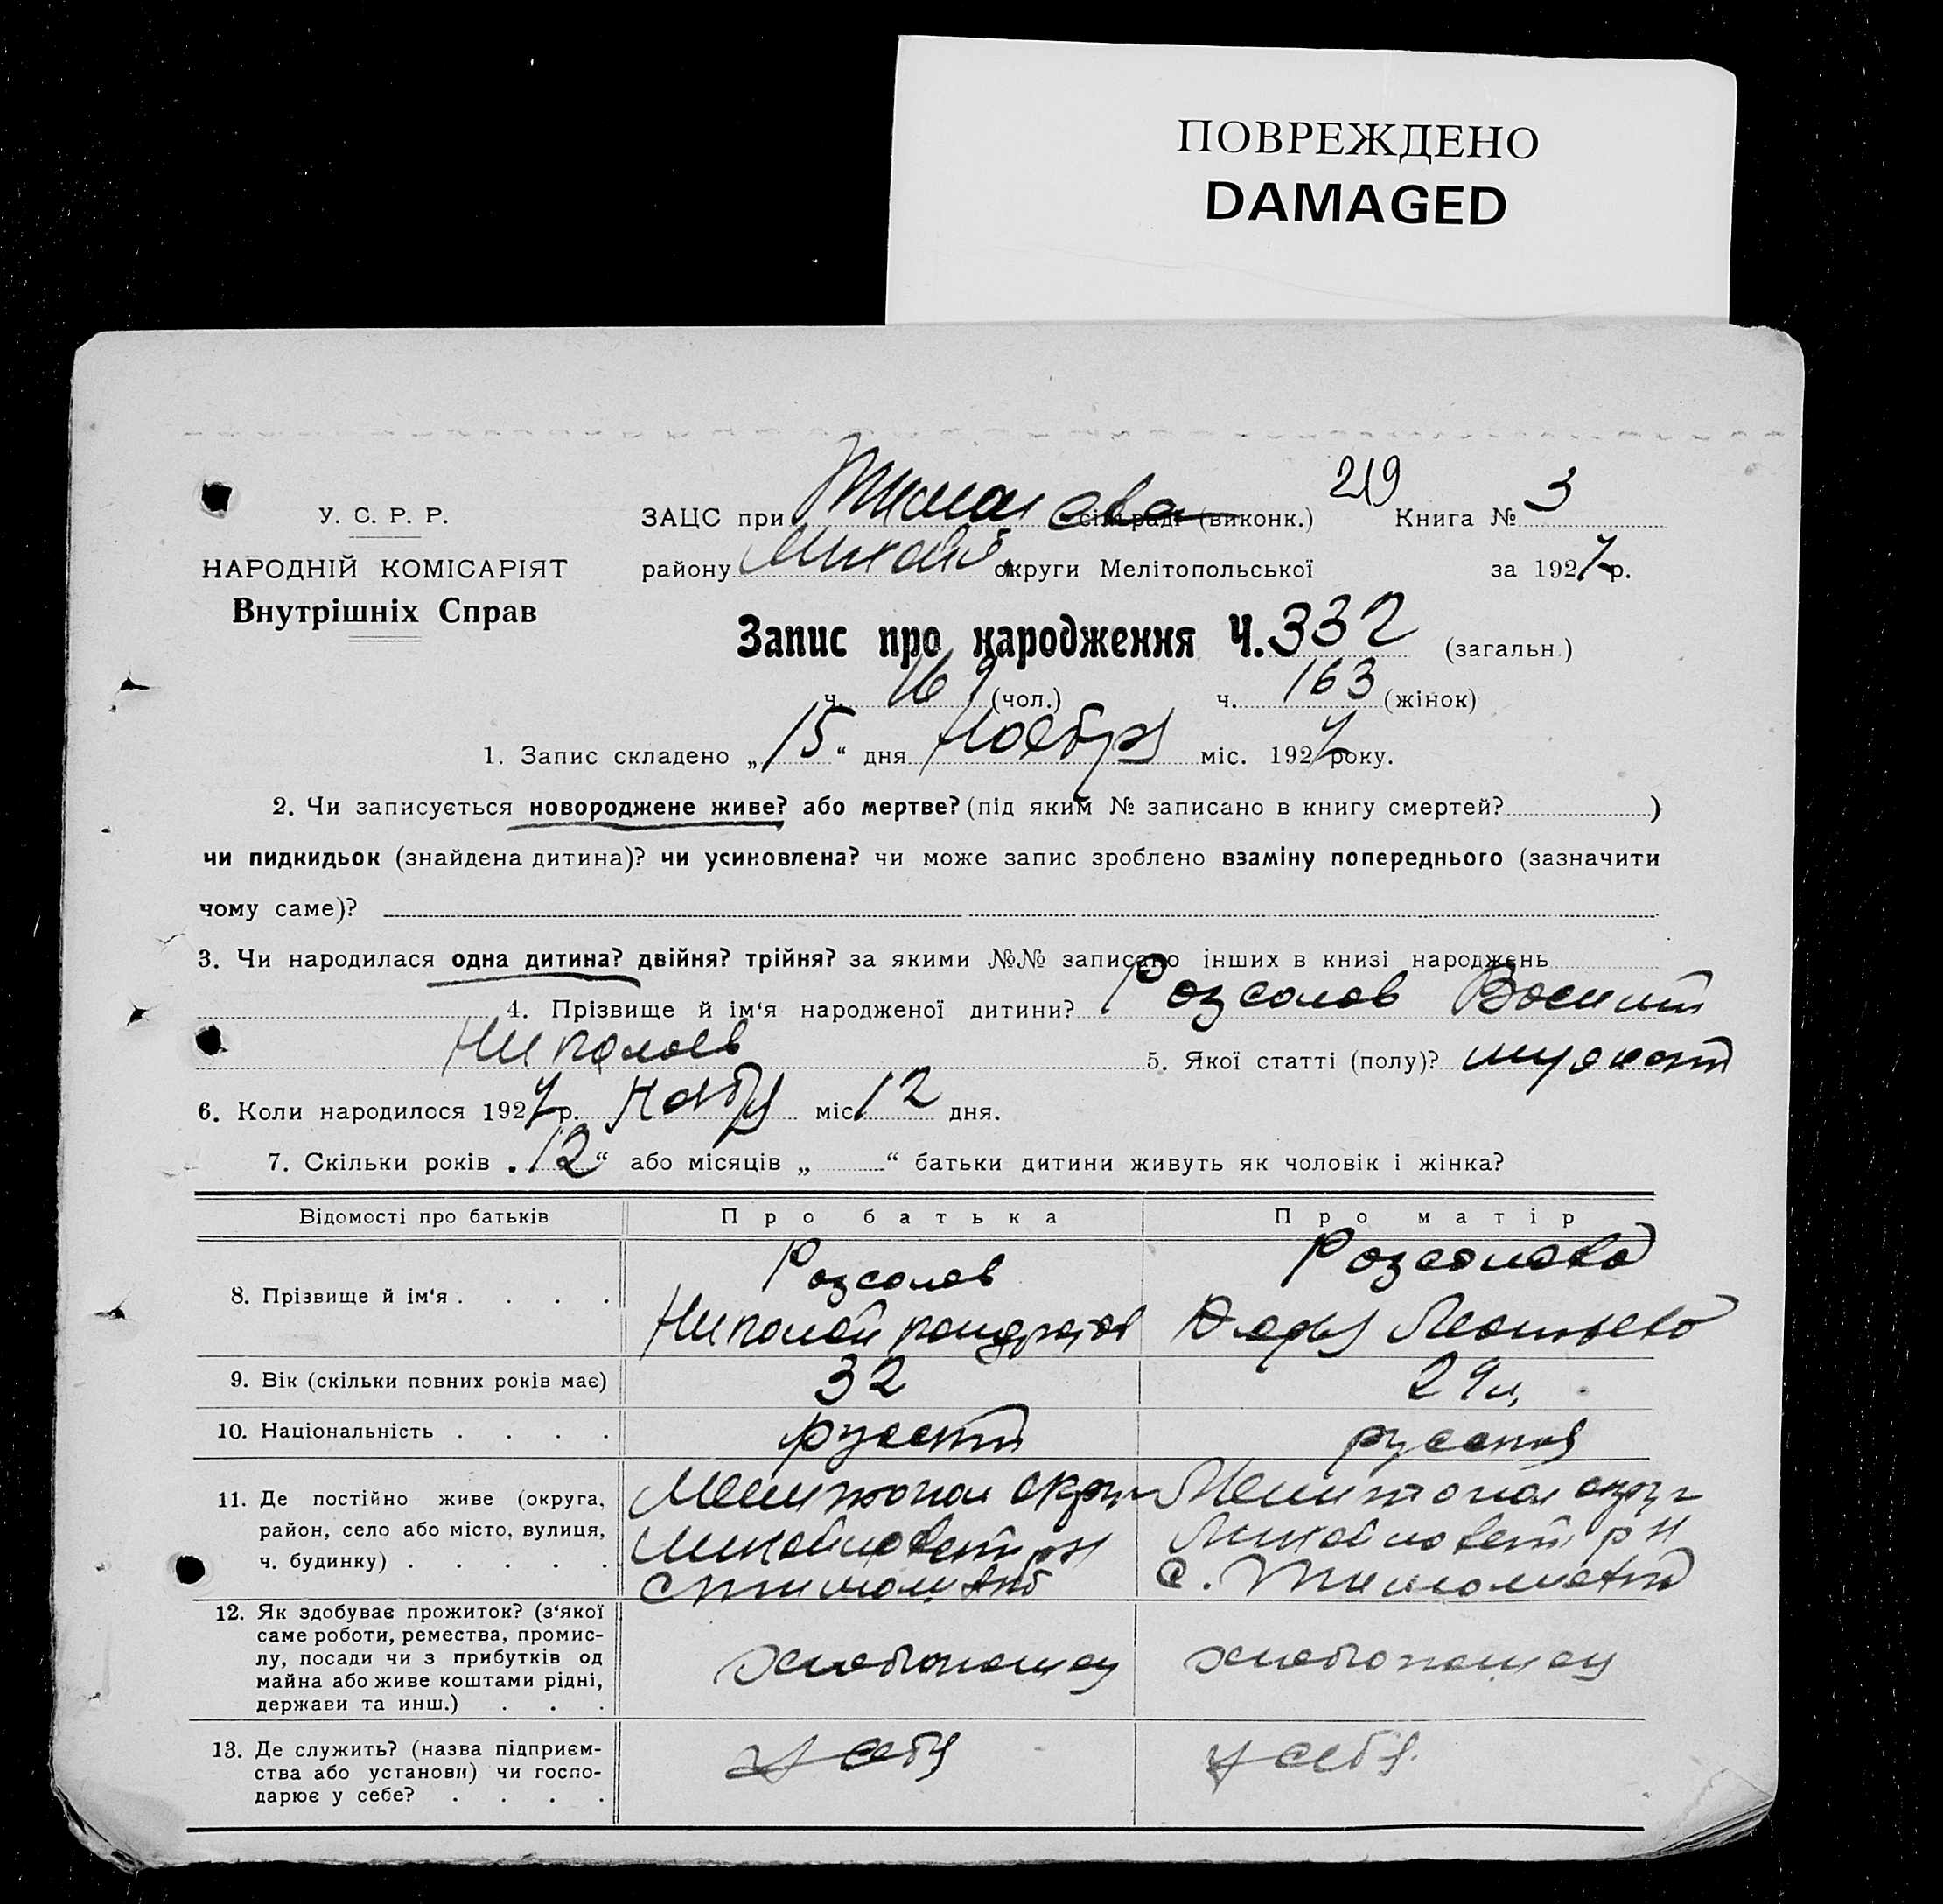 ПОВРЕЖДЕНО
DAMAGED
219
У. С. Р. Р.
ЗАЦС при сільраді (виконк.) Книга № 3
НАРОДНІЙ КОМІСАРІЯТ
району Михайл округи Мелітопольської за 1927 р.
Внутрішніх Справ
Запис про народження Ч. 332 (загальн.)
ч. 169 (чол.) ч. 163 (жінок)
1. Запис складено „15“ дня Ноября міс. 1927 року.
2. Чи записується новороджене живе? або мертве? (під яким № записано в книгу смертей? )
чи пидкидьок (знайдена дитина)? чи усиновлена? чи може запис зроблено взаміну попереднього (зазначити
чому саме)?
3. Чи народилася одна дитина? двійня? трійня? за якими №№ записано інших в книзі народжень
4. Прізвище й ім‘я народженої дитини? Розсолов Восилий
Николоев 5. Якої статті (полу)?
6. Коли народилося 1927 р. Ноября міс 12 дня.
7. Скільки років „12“ або місяців „ “ батьки дитини живуть як чоловік і жінка?
Відомості про батьків Про батька Про матір
8. Прізвище й ім‘я . . . . Розсолов Розсолова
Николай Кондратов Дарья Леонтьева
9. Вік (скільки повних років має) 32 29 л.
10. Національність . . . . руский руская
11. Де постійно живе (округа, район, село або місто, вулиця, ч. будинку) . . . . . Мелитопол округ Мелитопол округ
Михайловский рн Михайловский рн
с. с.
12. Як здобуває прожиток? (з‘якої саме роботи, ремества, промислу, посади чи з прибутків од майна або живе коштами рідні, держави та инш.) . . . хлебопашец хлебопашец
13. Де служить? (назва підприємства або установи) чи господарює у себе? . . . . у себя у себя